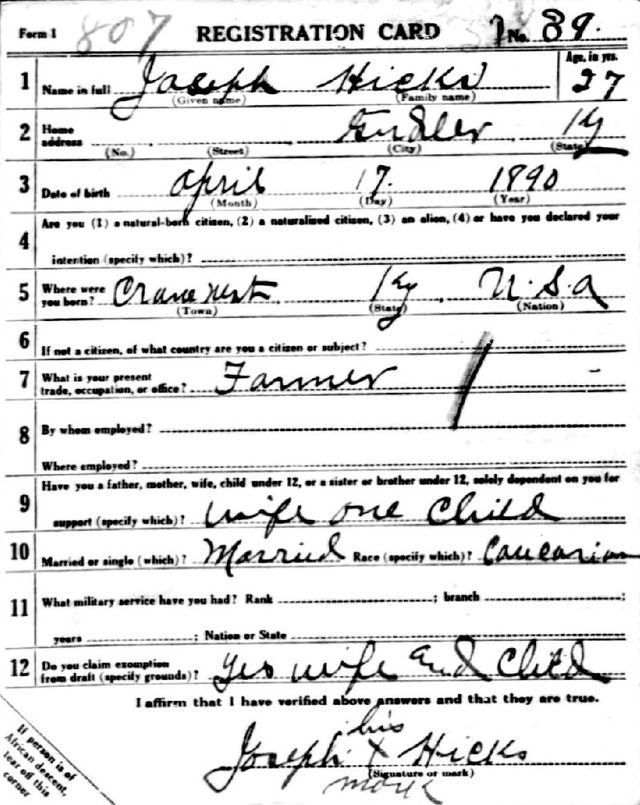 Form 1 807 REGISTRATION CARD No. 89.
1 Name in full Joseph Hicks Age, in yrs. 27
(Given name) (Family name)
2 Home address Ky
(No.) (Street) (City) (State)
3 Date of birth April 17. 1890
(Month) (Day) (Year)
4 Are you (1) a natural-born citizen, (2) a naturalized citizen, (3) an alien, (4) or have you declared your
intention (specify which)?
5 Where were you born? Crane nest Ky. U.S.A
(Town) (State) (Nation)
6 If not a citizen, of what country are you a citizen or subject?
7 What is your present trade, occupation, or office? Farmer
8 By whom employed?
Where employed?
9 Have you a father, mother, wife, child under 12, or a sister or brother under 12, solely dependent on you for
support (specify which)? wife one child
10 Married or single (which)? Married Race (specify which)? Caucasian
11 What military service have you had? Rank ; branch ;
years ; Nation or State
12 Do you claim exemption from draft (specify grounds)? Yes wife and child
I affirm that I have verified above answers and that they are true.
his
Joseph X Hicks
(Signature or mark)
mark
If person is of
African descent,
tear off this
corner